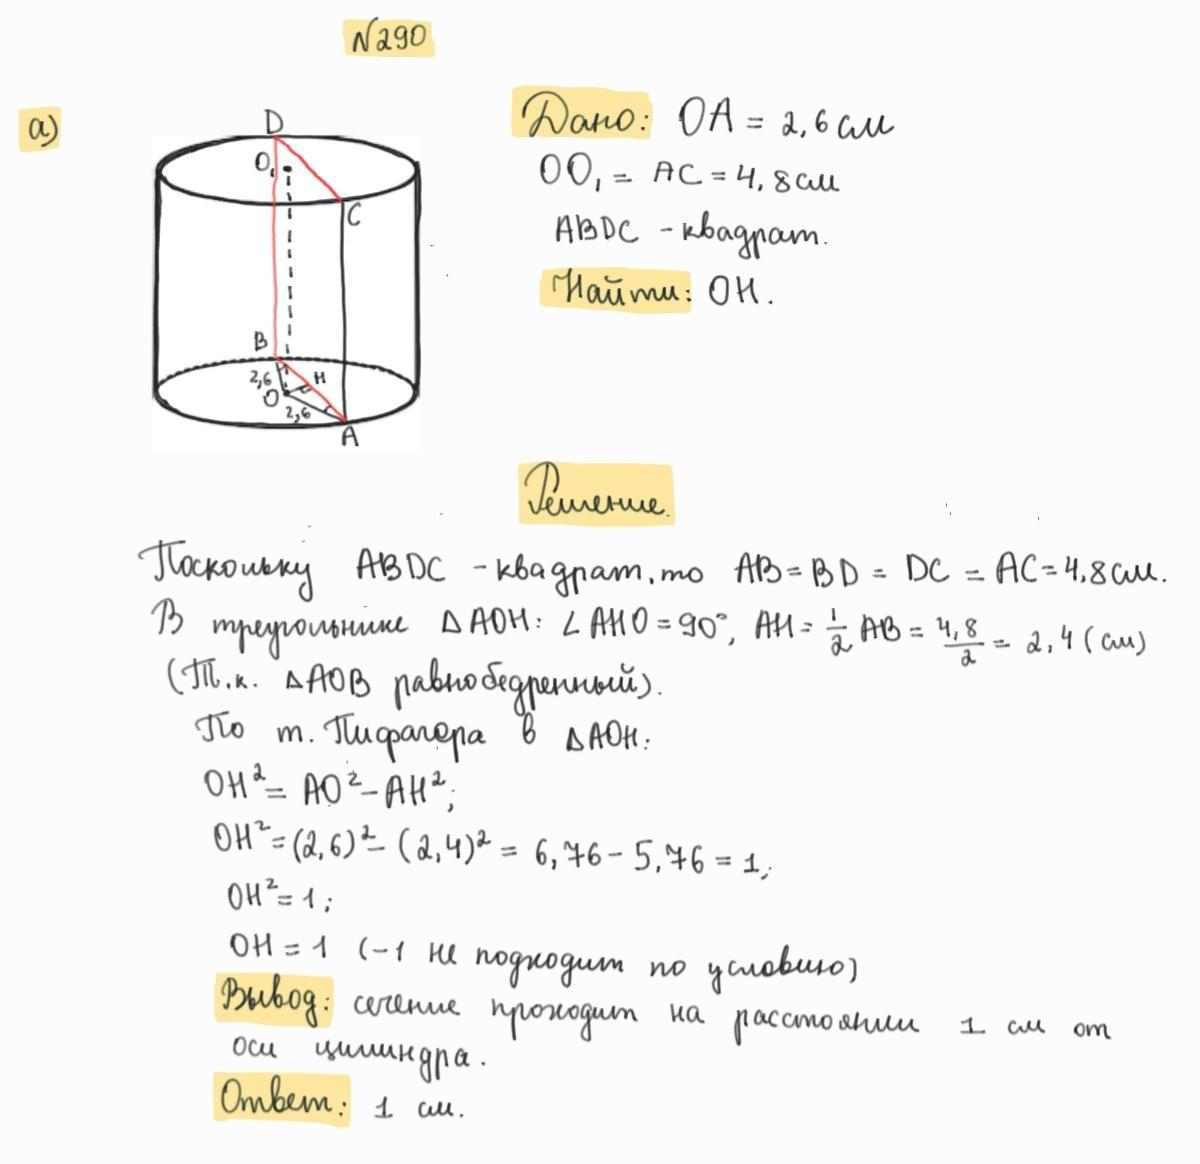 N290
а)
Дано: OA = 2,6 см
OO₁ = AC = 4,8 см
ABDC - квадрат.
Найти: OH.
D
O₁
C
B
2,6
H
O
2,6
A
Решение.
Поскольку ABDC - квадрат, то AB = BD = DC = AC = 4,8 см.
В треугольнике ΔAOH: ∠AHO = 90°, AH = 1/2 AB = 4,8/2 = 2,4 (см)
(Т.к. ΔAOB равнобедренный).
По т. Пифагора в ΔAOH:
OH² = AO² - AH²;
OH² = (2,6)² - (2,4)² = 6,76 - 5,76 = 1;
OH² = 1;
OH = 1 (-1 не подходит по условию)
Вывод: сечение проходит на расстоянии 1 см от
оси цилиндра.
Ответ: 1 см.